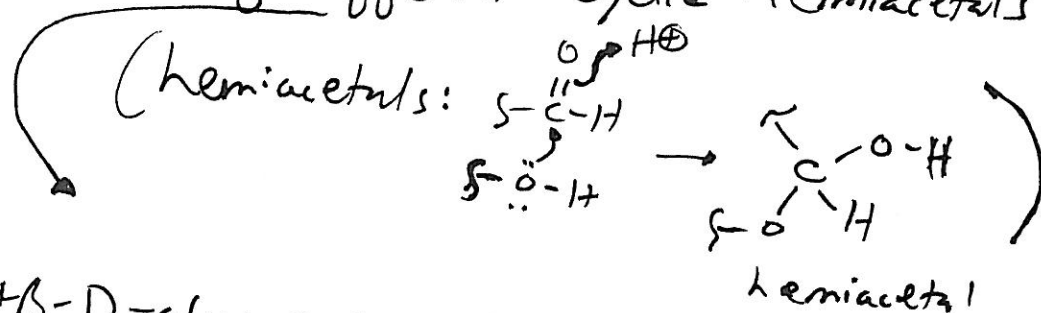 cyclic hemiacetals
(hemiacetals:
O H⊕
C-H
O-H
C O-H
O H
hemiacetal )
+β-D-